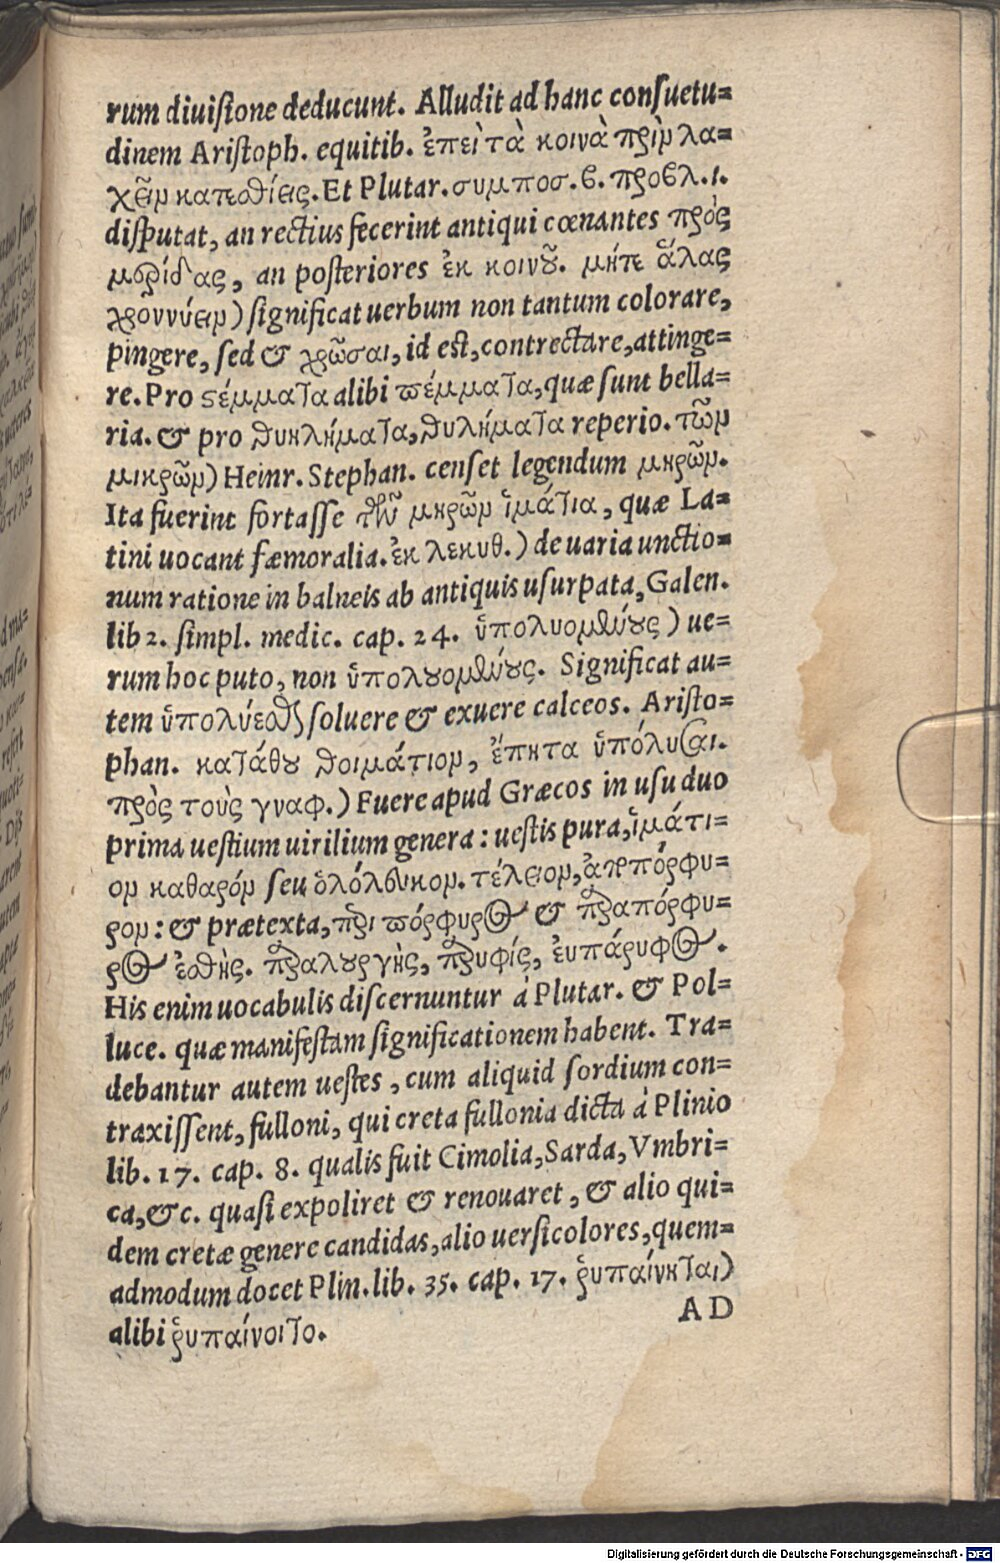 rum diuiſione deducunt. Alludit ad hanc conſuetu=
dinem Ariſtoph. equitib. ἐπεὶ τὰ κοινὰ πρὶν λα=
χεῖν κατεσθίεις. Et Plutar. συμποσ. β. προβλ. ι.
diſputat, an rectius fecerint antiqui cœnantes πρὸς
μερίδας, an poſteriores ἐκ κοινοῦ. μήτε ἅλας
χρωννύειν) ſignificat uerbum non tantum colorare,
pingere, ſed & χρῶσαι, id eſt, contrectare, attinge=
re. Pro στέμματα alibi πέμματα, quæ ſunt bella=
ria. & pro θυηλήματα, θυλήματα reperio. τῶν
μικρῶν) Heinr. Stephan. cenſet legendum μηρῶν.
Ita fuerint fortaſſe τῶν μηρῶν ἱμάτια, quæ La=
tini uocant fæmoralia. ἐκ λεκυθ.) de uaria unctio=
num ratione in balneis ab antiquis uſurpata, Galen.
lib 2. ſimpl. medic. cap. 24. ὑπολυομένους) ue=
rum hoc puto, non ὑπολουομένους. Significat au=
tem ὑπολύεσθαι ſoluere & exuere calceos. Ariſto=
phan. κατάθου θοιμάτιον, ἔπητα ὑπόλυσαι.
πρὸς τοὺς γναφ.) Fuere apud Græcos in uſu duo
prima ueſtium uirilium genera: ueſtis pura, ἱμάτι=
ον καθαρόν ſeu ὁλόλευκον. τέλειον, ἀπόρφυ=
ρον: & prætexta, περιπόρφυρος & παραπόρφυ=
ρος ἐσθὴς. παραλουργὴς, παρυφίς, ἐυπάρυφος.
His enim uocabulis diſcernuntur à Plutar. & Pol=
luce. quæ manifeſtam ſignificationem habent. Tra=
debantur autem ueſtes, cum aliquid ſordium con=
traxiſſent, fulloni, qui creta fullonia dicta à Plinio
lib. 17. cap. 8. qualis fuit Cimolia, Sarda, Vmbri=
ca, &c. quaſi expoliret & renouaret, & alio qui=
dem cretæ genere candidas, alio uerſicolores, quem=
admodum docet Plin. lib. 35. cap. 17. ῥυπαίνηται)
alibi ῥυπαίνοιτο.
AD
Digitalisierung gefördert durch die Deutsche Forschungsgemeinschaft - DFG